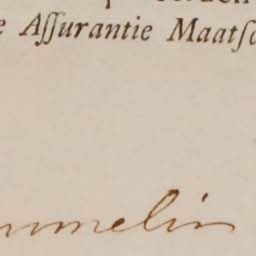 e Aſſurantie Maatſc
ummelin